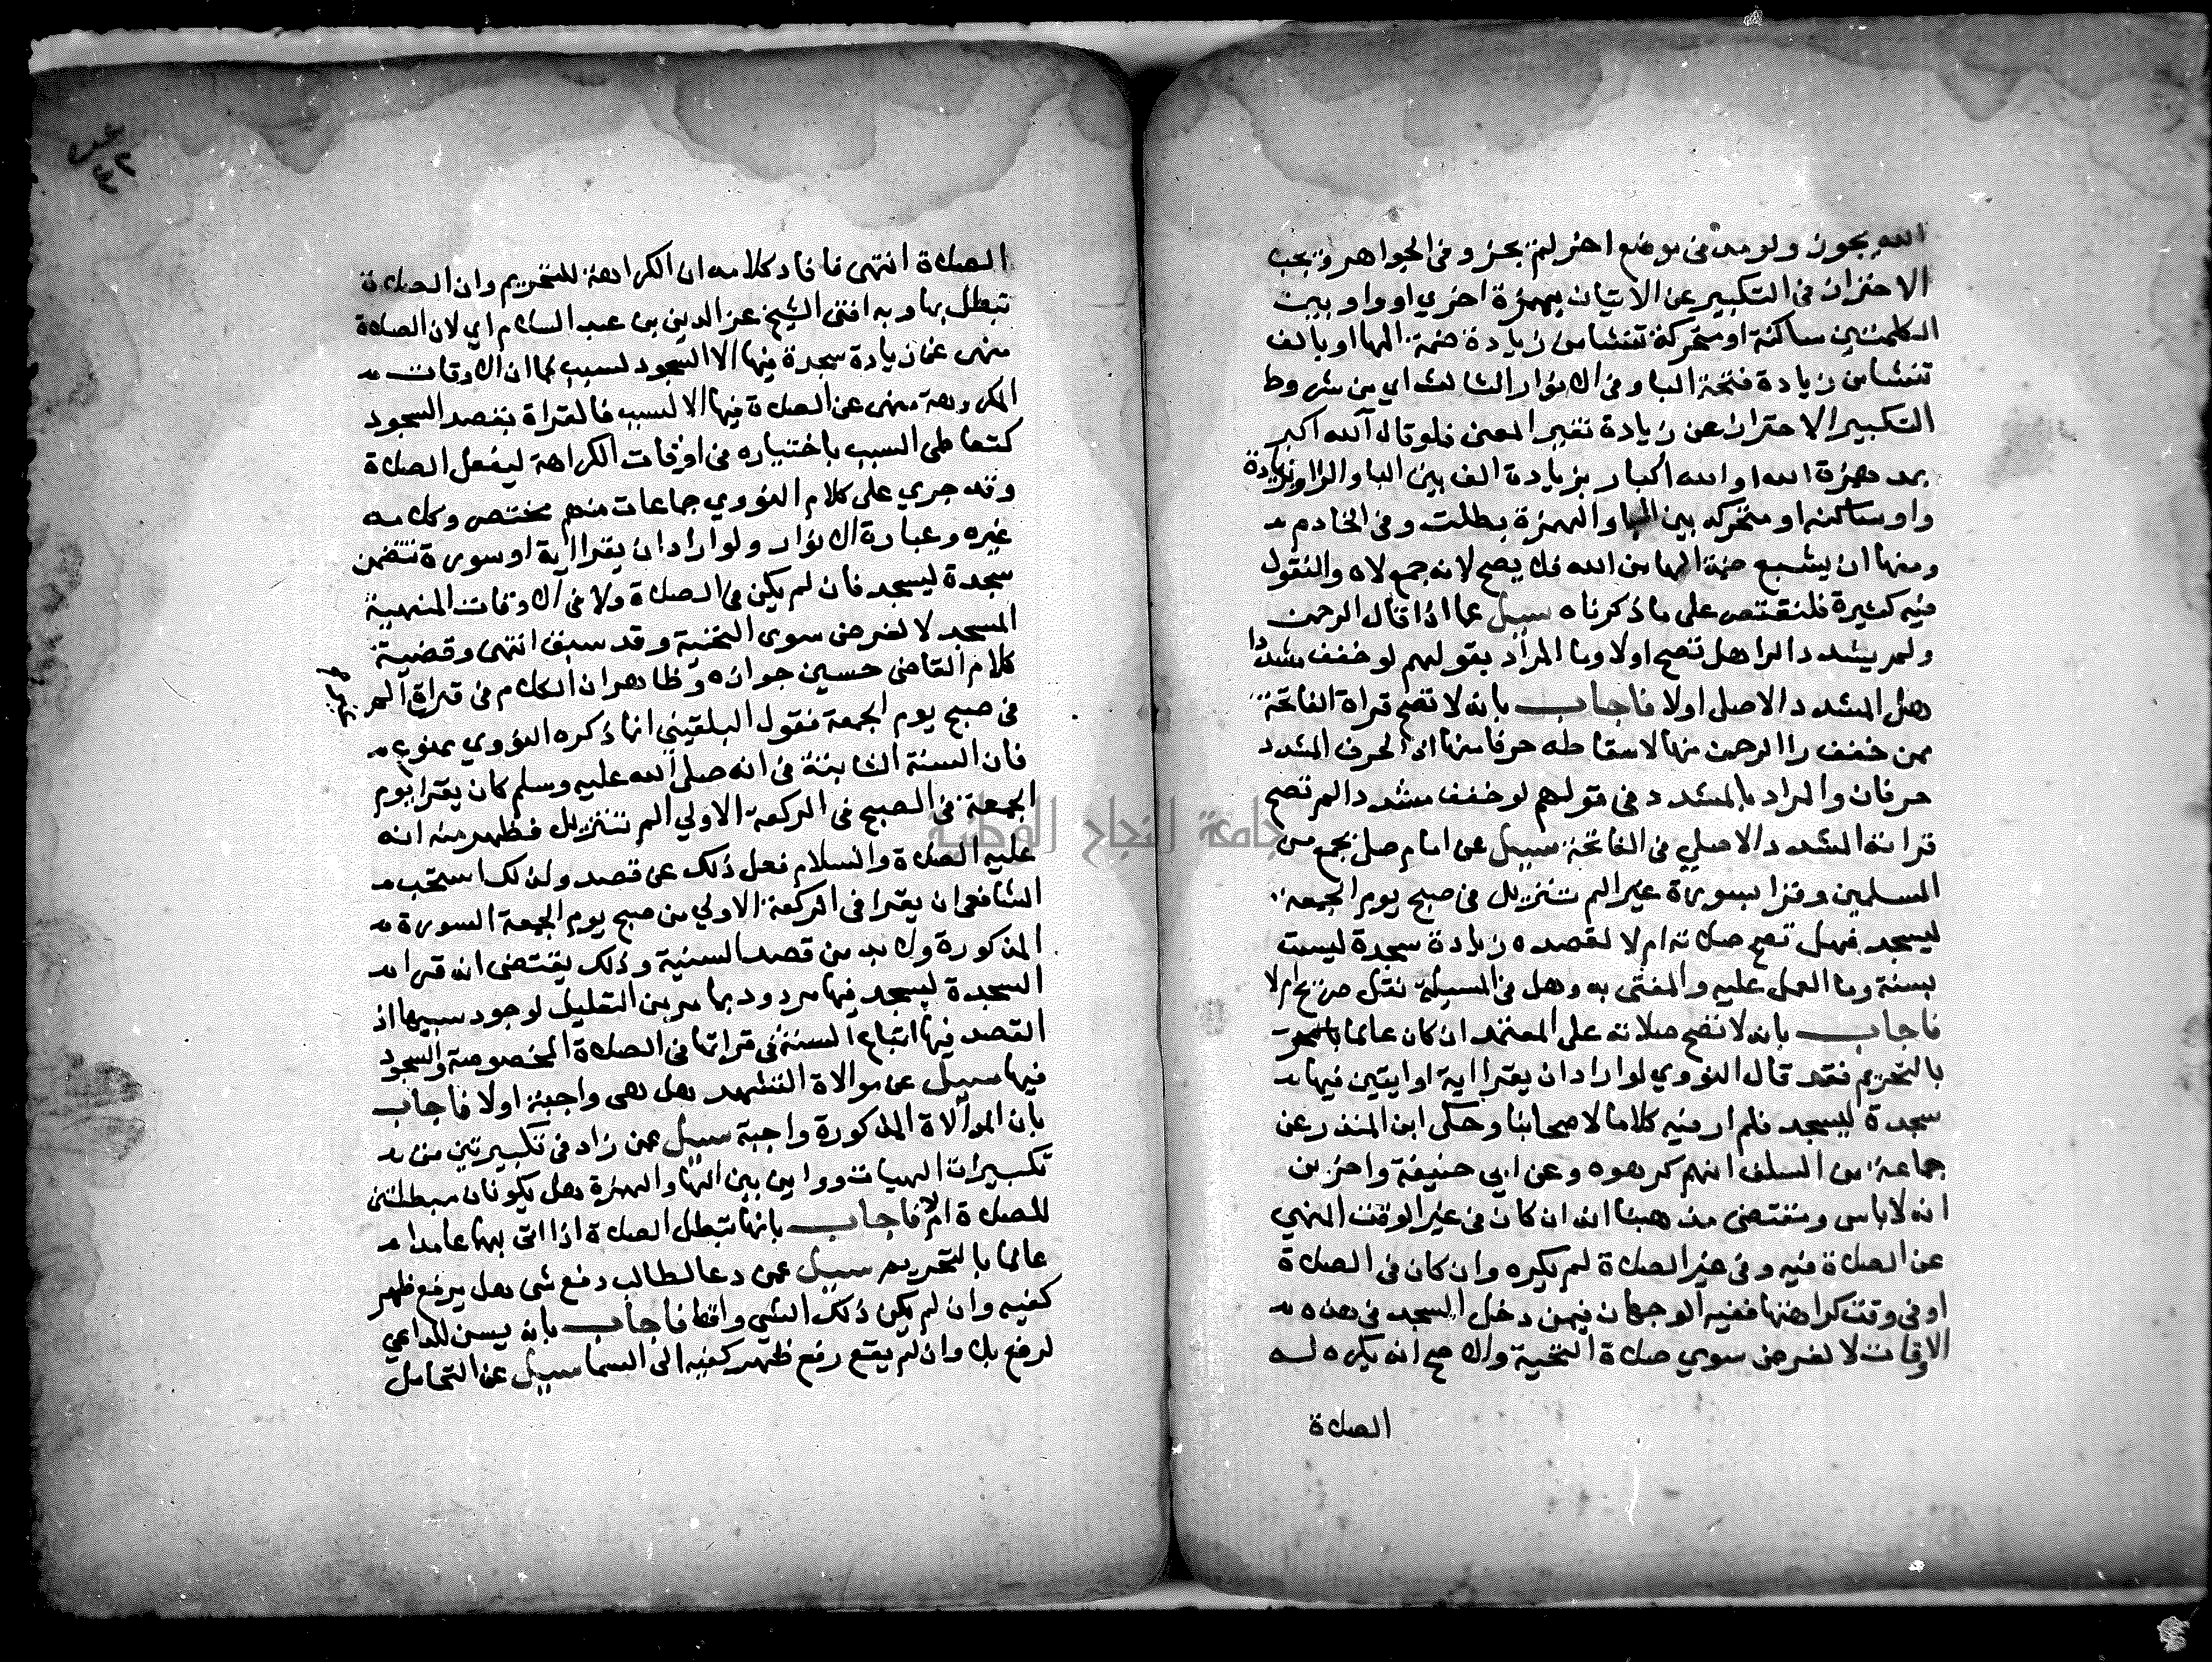 الله يجوز ولو مد في موضع اخر لم يجز وفي الجواهر ويجب
الاحتراز في التكبير عن الاتيان بهمزة اخري او واو بين
الكلمتين ساكنة او متحركة تنشا من زيادة ضمة الها او بالف
تنشا من زيادة فتحة البا وفي الانوار الثالث اي من شروط
التكبير الاحتراز عن زيادة تغير المعنى فلو قال آلله اكبر
بمد همزة الله او الله اكبار بزيادة الف بين البا والرا او بزيادة
واو ساكنه او متحركه بين الها والهمزة بطلت وفي الخادم
ومنها ان يشبع ضمة الها من الله فلا يصح لانه جمع لاه والنقول
فيه كثيرة فلنقتصر على ما ذكرناه سيل عما اذا قال الرحمن
ولم يشدد الرا هل تصح اولا وما المراد بقولهم لو خفف مشددا
هل المشدد الاصل اولا فاجاب بانه لا تصح قراة الفاتحة
ممن خفف را الرحمن منها لاسقاطه حرفا منها اذ الحرف المشدد
حرفان والمراد بالمشدد في قولهم لو خفف مشددا لم تصح
قراته المشدد الاصلي في الفاتحة سيل عن امام صلى بجمع من
المسلمين وقرا بسورة غير الم تنزيل في صبح يوم الجمعة
ليسجد فهل تصح صلاته ام لا لقصده زيادة سجدة ليست
بسنة وما العمل عليه والمفتى به وهل في المسيلة نقل صريح ام لا
فاجاب بانه لا تصح صلاته على المعتمد ان كان عالما
بالتحريم فقد قال النووي لو اراد ان يقرا اية او ايتين فيها
سجدة ليسجد فلم ار فيه كلاما لاصحابنا وحكى ابن المنذر عن
جماعة من السلف انهم كرهوه وعن ابي حنيفة واخرين
انه لا باس ومقتضى مذهبنا انه ان كان في غير الوقت المنهي
عن الصلاة فيه وفي غير الصلاة لم يكره وان كان في الصلاة
او في وقت كراهتها ففيه الوجهان فيمن دخل المسجد في هذه
الاوقات لا لغرض سوي صلاة التحية والاصح انه يكره له
الصلاة
الصلاة انتهى فافاد كلامه ان الكراهة للتحريم وان الصلاة
تبطل بها وبه افتى الشيخ عز الدين بن عبد السلام اي لان الصلاة
منهى عن زيادة سجدة فيها الا السجود لسبب كما ان الاوقات
المكروهة منهى عن الصلاة فيها الا لسبب فالقراة بقصد السجود
كتعاطى السبب باختياره في اوقات الكراهة ليفعل الصلاة
وقد جري على كلام النووي جماعات منهم مختصروا كلامه
غيره وعبارة الانوار ولو اراد ان يقرا اية او سورة تتضمن
سجدة ليسجد فان لم يكن في الصلاة ولا في الاوقات المنهية
المسجد لا لغرض سوى التحية وقد سبق انتهى وقضية
كلام القاضى حسين جوازه وظاهر ان الكلام في قراة الم
في صبح يوم الجمعة فقول البلقيني انما ذكره النووي ممنوع
فان السنة الثابتة في انه صلى الله عليه وسلم كان يقرا يوم
الجمعة في الصبح في الركعة الاولي الم تنزيل فظهر منه انه
عليه الصلاة والسلام فعل ذلك عن قصد ولذلك استحب
الشافعى ان يقرا في الركعة الاولي من صبح يوم الجمعة السورة
المذكورة ولا بد من قصد السنية وذلك يقتضى انه قرا
السجدة ليسجد فيها مردود بما مر من التعليل لوجود سببها اذ
القصد فيها اتباع السنة في قراتها في الصلاة المخصوصة والسجود
فيها سيل عن موالاة التشهد هل هى واجبة اولا فاجاب
بان الموالاة المذكورة واجبة سيل عمن زاد في تكبيرتين من
تكبيرات الهيات وواين بين الها والهمزة هل يكونان مبطلتين
للصلاة ام لا فاجاب بانها تبطل الصلاة اذا اتى بها عامدا
عالما بالتحريم سيل عمن دعا لطالب دفع شى هل يرفع ظهر
كفيه وان لم يكن ذلك الشي واقعا فاجاب بانه يسن للداعي
لرفع بلا وان لم يقع رفع ظهر كفيه الى السما سيل عن التحامل
جامعة النجاح الوطنية